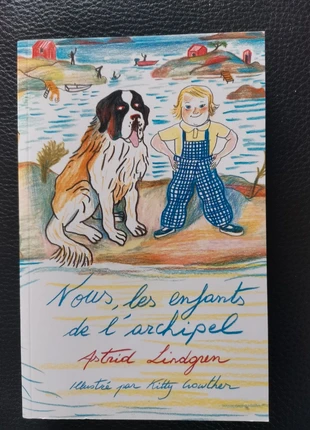 Nous, les enfants
de l'archipel
Astrid Lindgren
Illustré par Kitty Crowther